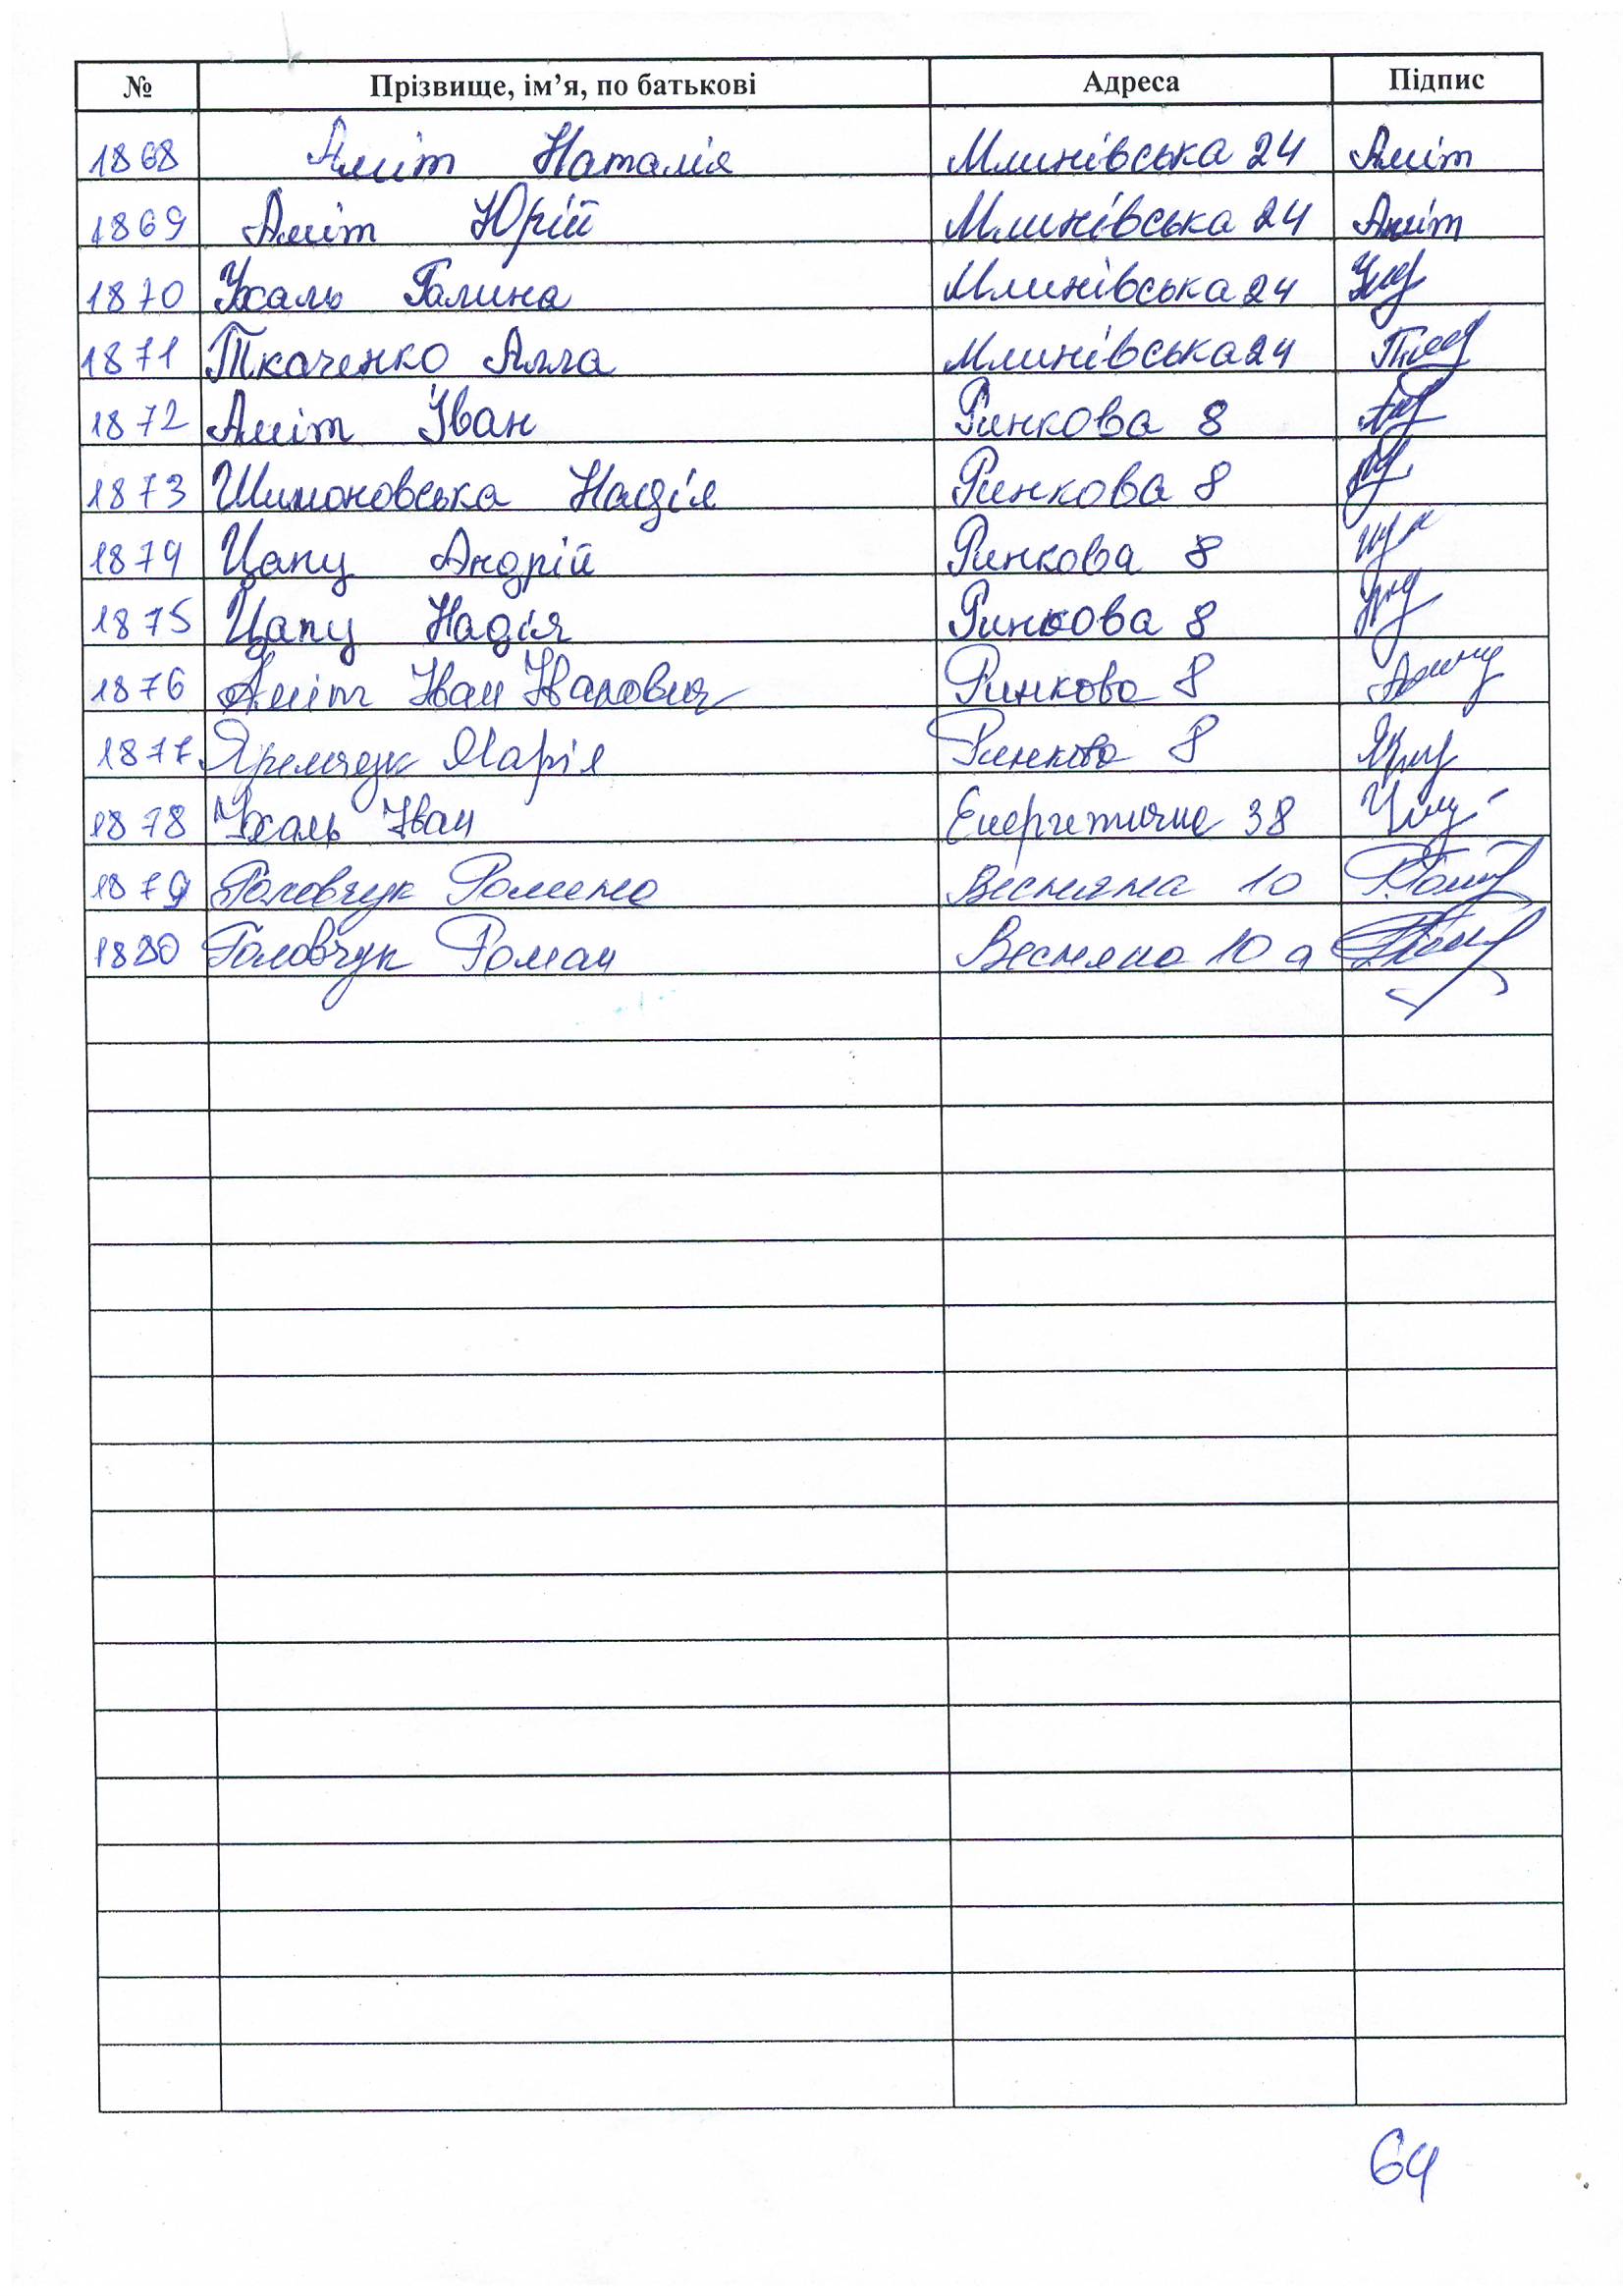 № Прізвище, ім’я, по батькові Адреса Підпис
1868 Аміт Наталія Млинівська 24 Аміт
1869 Аміт Юрій Млинівська 24 Аміт
1870 Ухаль Галина Млинівська 24
1871 Ткаченко Алла Млинівська 24
1872 Аміт Іван Ринкова 8
1873 Шимоновська Надія Ринкова 8
1874 Цапу Андрій Ринкова 8
1875 Цапу Надія Ринкова 8
1876 Аміт Іван Іванович Ринкова 8
1877 Яремчук Марія Ринкова 8
1878 Ухаль Іван Енергетична 38
1879 Головчук Весняна 10
1880 Головчук Роман Весняна 10 а
64